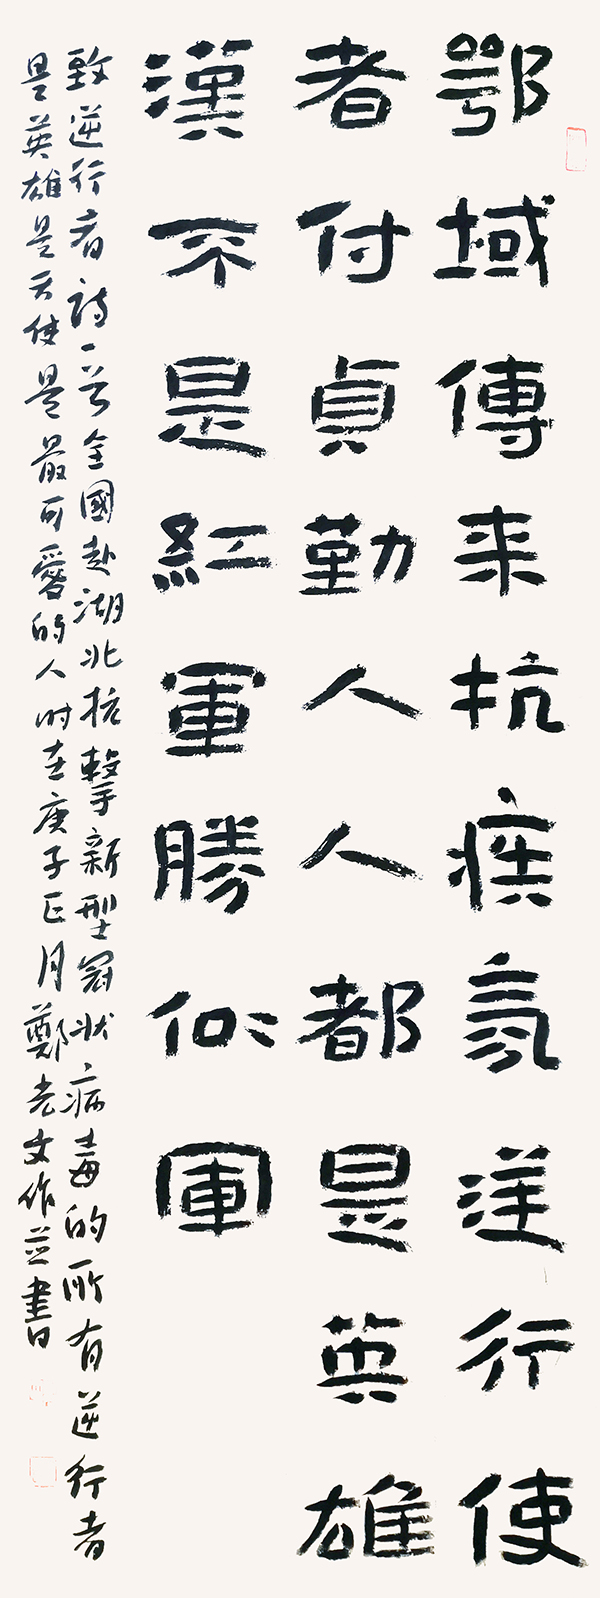 鄂域傳来抗疾氛逆行使
者付貞勤人人都是英雄
漢不是紅軍勝似軍
致逆行者詩一首全國赴湖北抗擊新型冠状病毒的所有逆行者
是英雄是天使是最可愛的人时在庚子正月鄭文作並書